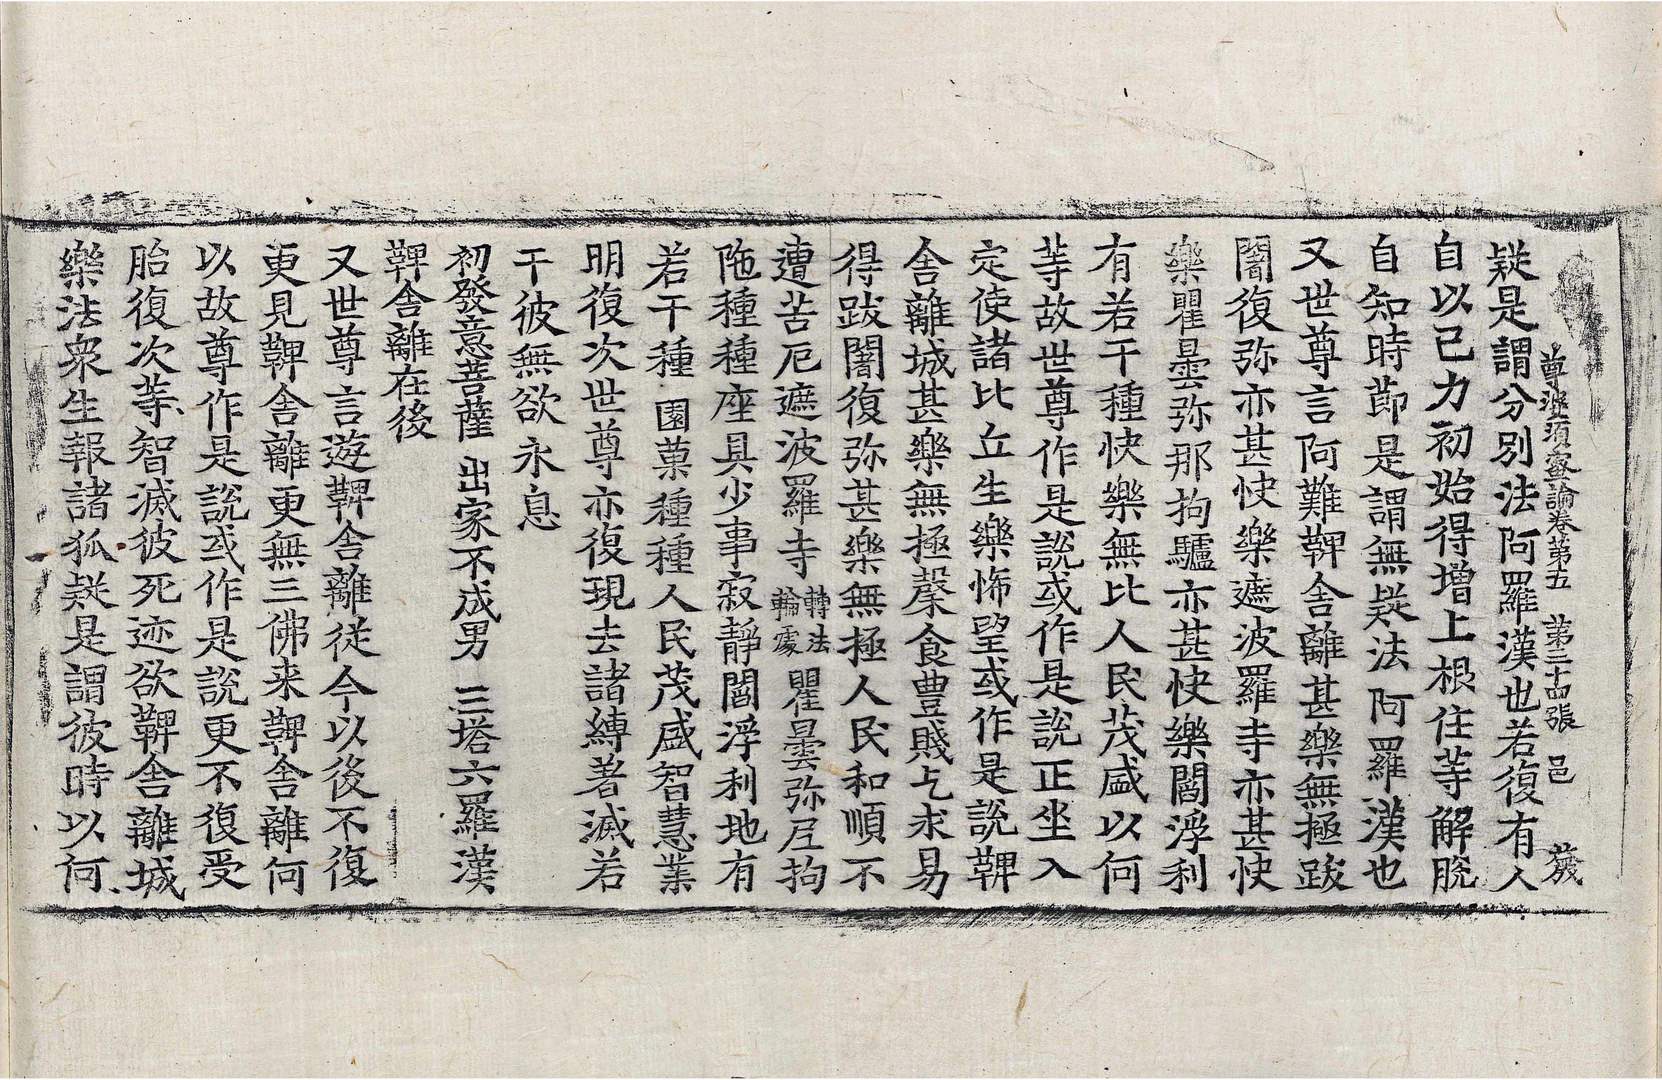 尊婆須蜜論卷第五 第三十四張 邑 葳
疑是謂分別法阿羅漢也若復有人
自以己力初始得增上根住等解脫
自知時節是謂無疑法阿羅漢也
又世尊言阿難鞞舍離甚樂無極跋
闍復弥亦甚快樂遮波羅寺亦甚快
樂瞿曇弥那拘驢亦甚快樂閻浮利
有若干種快樂無比人民茂盛以何
等故世尊作是說或作是說正坐入
定使諸比丘生樂悕望或作是說鞞
舍離城甚樂無極𣪺食豊賤乞求易
得跋闍復弥甚樂無極人民和順不
遭苦厄遮波羅寺轉法輪處瞿曇弥尼拘
陁種種座具少事寂靜閻浮利地有
若干種園菓種種人民茂盛智慧業
明復次世尊亦復現去諸縛著滅若
干彼無欲永息
初發意菩薩 出家不成男 三塔六羅漢
鞞舍離在後
又世尊言遊鞞舍離從今以後不復
更見鞞舍離更無三佛来鞞舍離何
以故尊作是說或作是說更不復受
胎復次等智滅彼死迹欲鞞舍離城
樂法衆生報諸狐疑是謂彼時以何